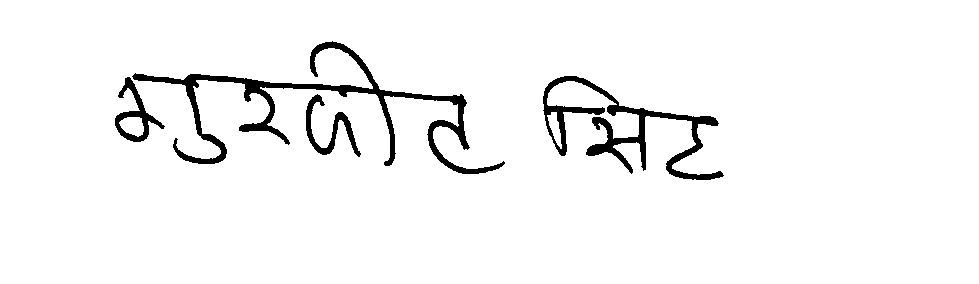 गुरजीत सिह